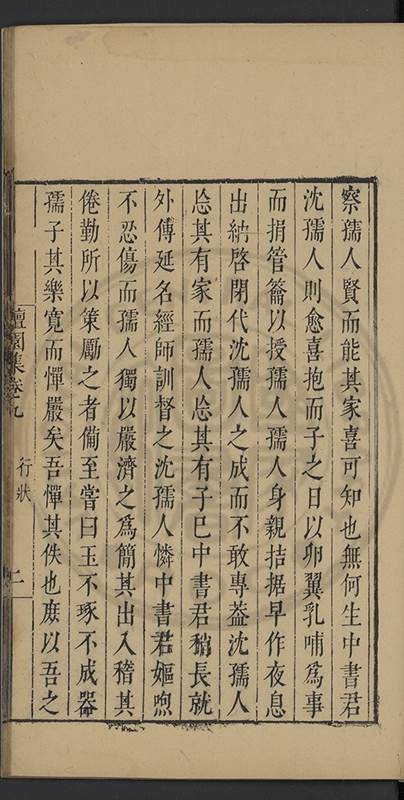 察孺人賢而能其家喜可知也無何生中書君
沈孺人則愈喜抱而子之日以卵翼乳哺爲事
而捐管籥以授孺人孺人身親拮据早作夜息
出納啓閉代沈孺人之成而不敢專葢沈孺人
忘其有家而孺人忘其有子巳中書君稍長就
外傅延名經師訓督之沈孺人憐中書君嫗喣
不忍傷而孺人獨以嚴濟之爲簡其出入稽其
倦勤所以策勵之者備至嘗曰玉不琢不成器
孺子其樂寛而憚嚴矣吾憚其佚也庶以吾之
集卷九
行狀
二